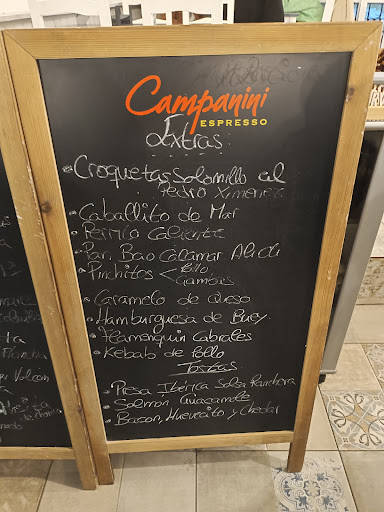 Campanini
ESPRESSO
Extras
Croquetas Solomillo al
Pedro Ximenez
Caballito de Mar
Perrito Caliente
Pan Bao Calamar Alioli
Pinchitos < Pollo
Gambas
Caramelo de Queso
Hamburguesa de Buey
Flamenquin Cabrales
Kebab de Pollo
Tostas
Presa Ibérica Salsa Ranchera
Salmon Guacamole
Bacon, Huevecito y Chedar